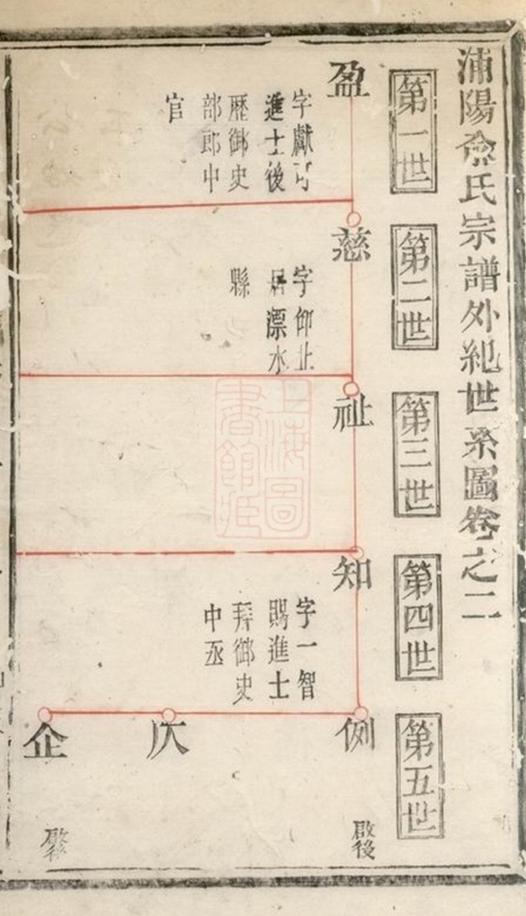 浦陽俞氏宗譜外紀世系圖卷之二
第一世
盈
字獻可
進士後
歷御史
部郎中
官
第二世
慈
字仰止
居漂水
縣
第三世
祉
第四世
知
字一智
賜進士
拜御史
中丞
第五世
例
啟後
仄
企
上海圖
書館藏